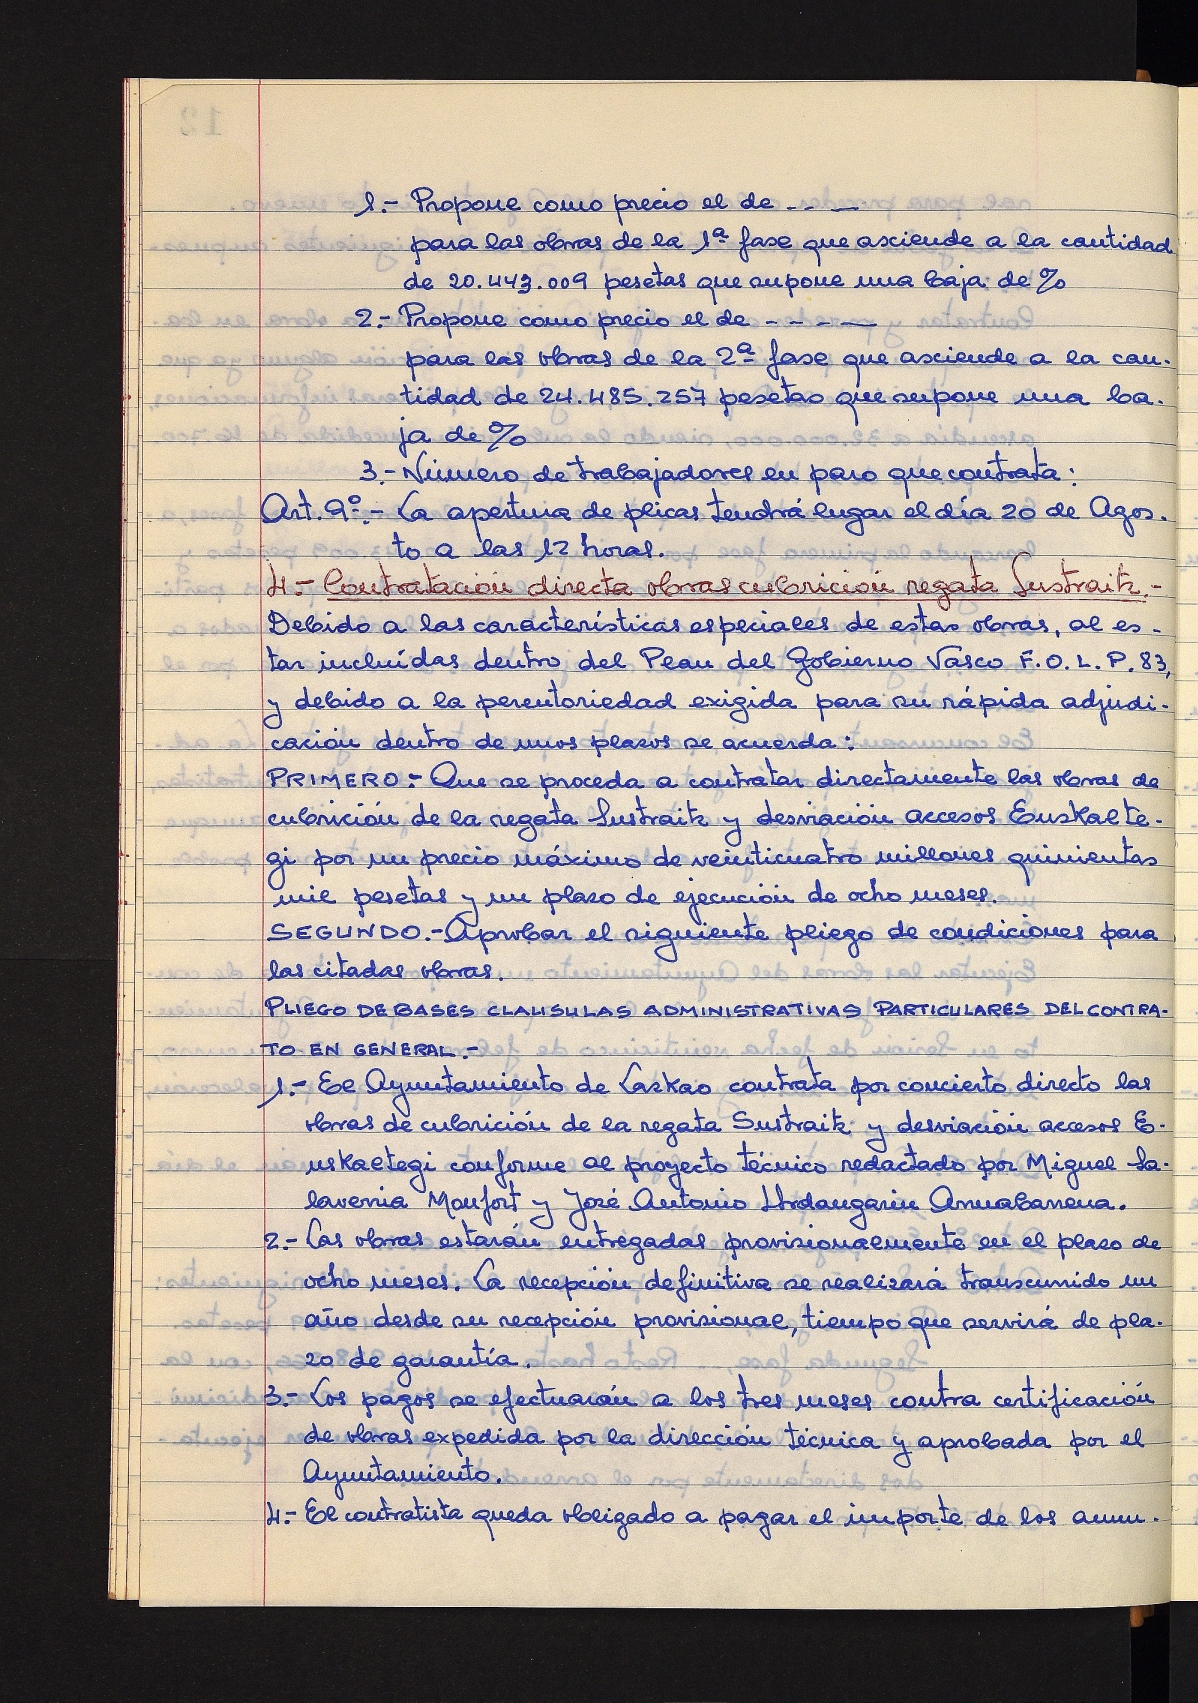 1.- Propone como precio el de - - -
para las obras de la 1ª fase que asciende a la cantidad
de 20.443.009 pesetas que supone una baja de %
2.- Propone como precio el de - - - -
para las obras de la 2ª fase que asciende a la can-
tidad de 24.485.257 pesetas que supone una ba-
ja de %
3.- Número de trabajadores en paro que contrata:
Art. 9º.- La apertura de plicas tendrá lugar el día 20 de Agos-
to a las 12 horas.
4.- Contratación directa obras cubrición regata Sustraitz.-
Debido a las características especiales de estas obras, al es-
tar incluídas dentro del Plan del Gobierno Vasco F.O.L.P. 83,
y debido a la perentoriedad exigida para su rápida adjudi-
cación dentro de unos plazos se acuerda:
PRIMERO.- Que se proceda a contratar directamente las obras de
cubrición de la regata Sustraitz y desviación accesos Euskalte-
gi por un precio máximo de veinticuatro millones quinientas
mil pesetas y un plazo de ejecución de ocho meses.
SEGUNDO.- Aprobar el siguiente pliego de condiciones para
las citadas obras.
PLIEGO DE BASES CLAUSULAS ADMINISTRATIVAS PARTICULARES DEL CONTRA-
TO EN GENERAL.-
1.- El Ayuntamiento de Lazkao contrata por concierto directo las
obras de cubrición de la regata Sustraitz y desviación accesos E-
uskaltegi conforme al proyecto técnico redactado por Miguel Sa-
laverria Monfort y José Antonio Urdangarin Arruabarrena.
2.- Las obras estarán entregadas provisionalmente en el plazo de
ocho meses. La recepción definitiva se realizará transcurrido un
año desde su recepción provisional, tiempo que servirá de pla-
zo de garantía.
3.- Los pagos se efectuarán a los tres meses contra certificación
de obras expedida por la dirección técnica y aprobada por el
Ayuntamiento.
4.- El contratista queda obligado a pagar el importe de los anun-